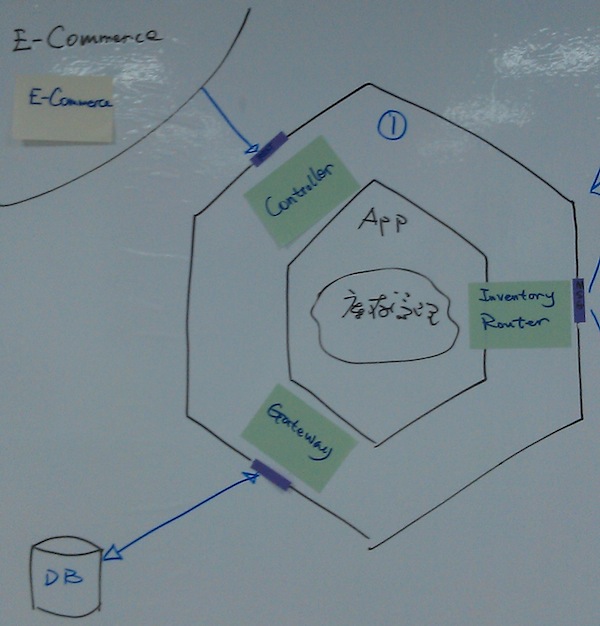 E-Commerce
E-Commerce
①
Controller
App
Inventory
Router
Gateway
DB